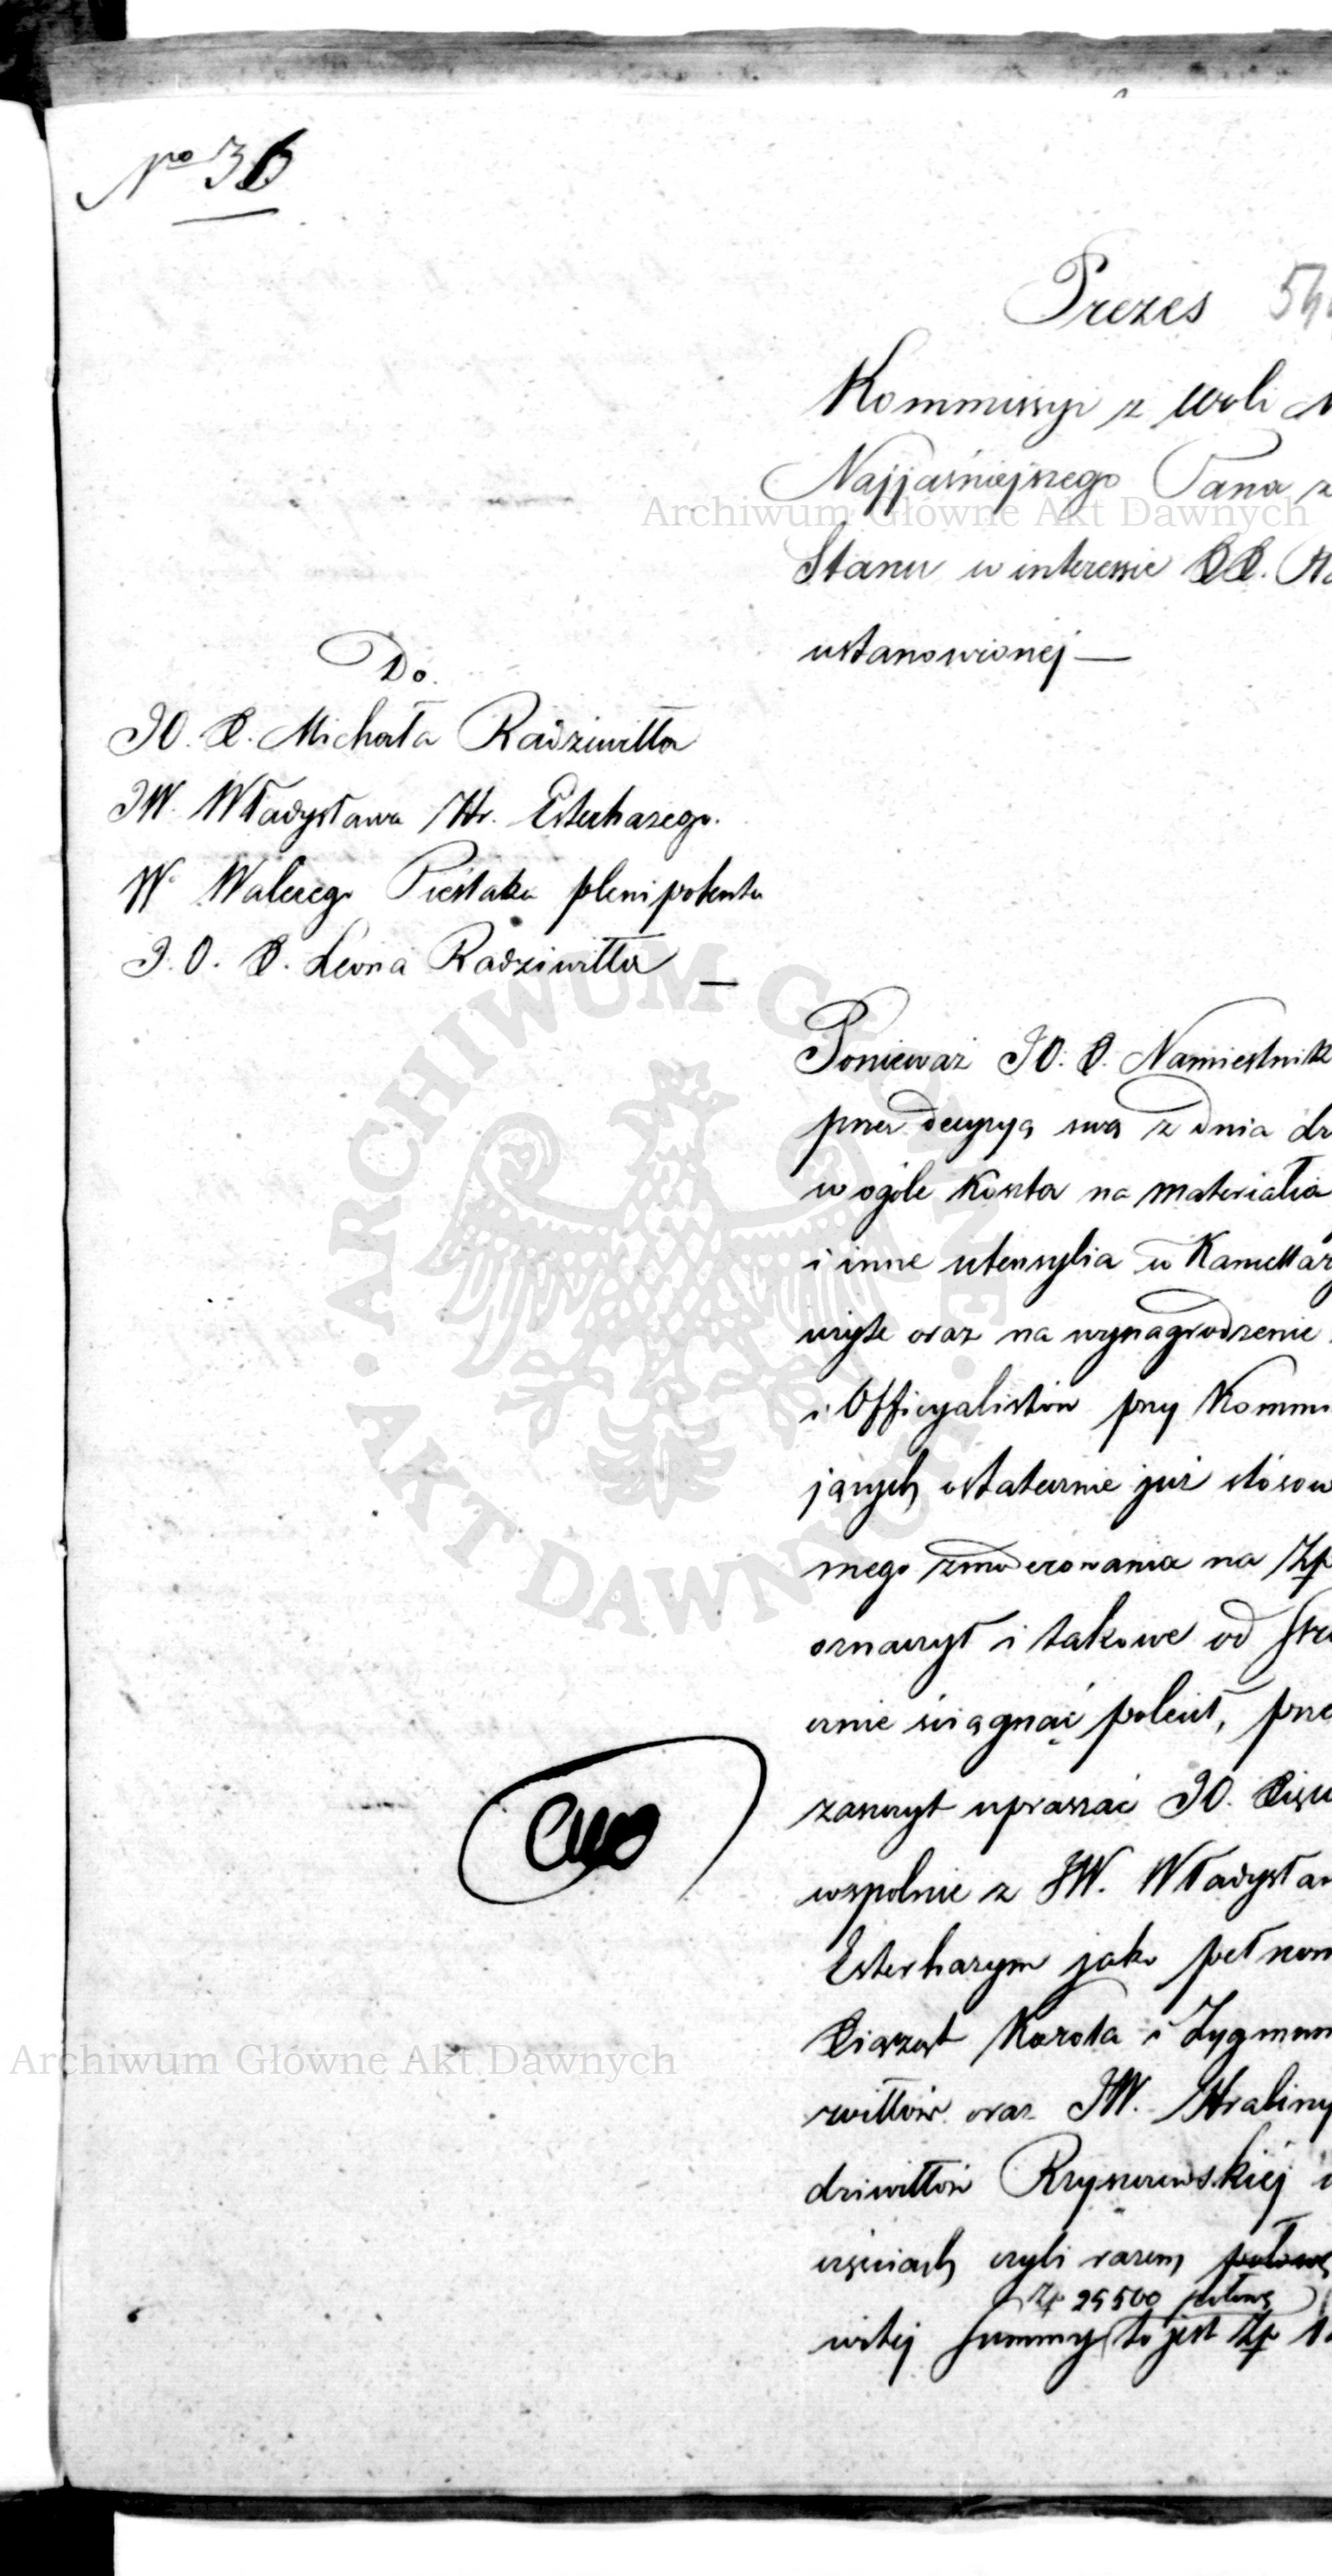 No 36
Prezes 54
Kommissyi z woli N
Najjaśniejszego Pana z
Stanu w interessie XX. Ra
ustanowionej —
Do
JO. X. Michała Radziwiłła
JW. Władysława Hr. Esterhazego.
W. Walerego Pieślaka plenipotenta
J.O. X. Leona Radziwiłła —
Ponieważ JO. X. Namiestnik
przez decyzyą swą z dnia
w ogóle koszta na materiała
i inne utensylia w Kancellar
użyte oraz na wynagrodzenie
i Officyalistów przy Kommi
jących ostatecznie już stósow
nego zmoderowania na Zp
oznaczył i takowe od Stro
cznie ściągnąć polecił, prze
zaszczyt upraszać JO. Xięc
wspolnie z JW. Władysław
Esterhazym jako pełnom
Xiążąt Karola i Zygmun
ziwiłłów oraz JW. Hrabiny
dziwiłłów Rzyszczewskiej
częściach czyli razem połowę
Zp 25500 połowę
witej Summy to jest Zp 1
Archiwum Główne Akt Dawnych
ARCHIWUM GŁÓWNE
AKT DAWNYCH
Archiwum Główne Akt Dawnych